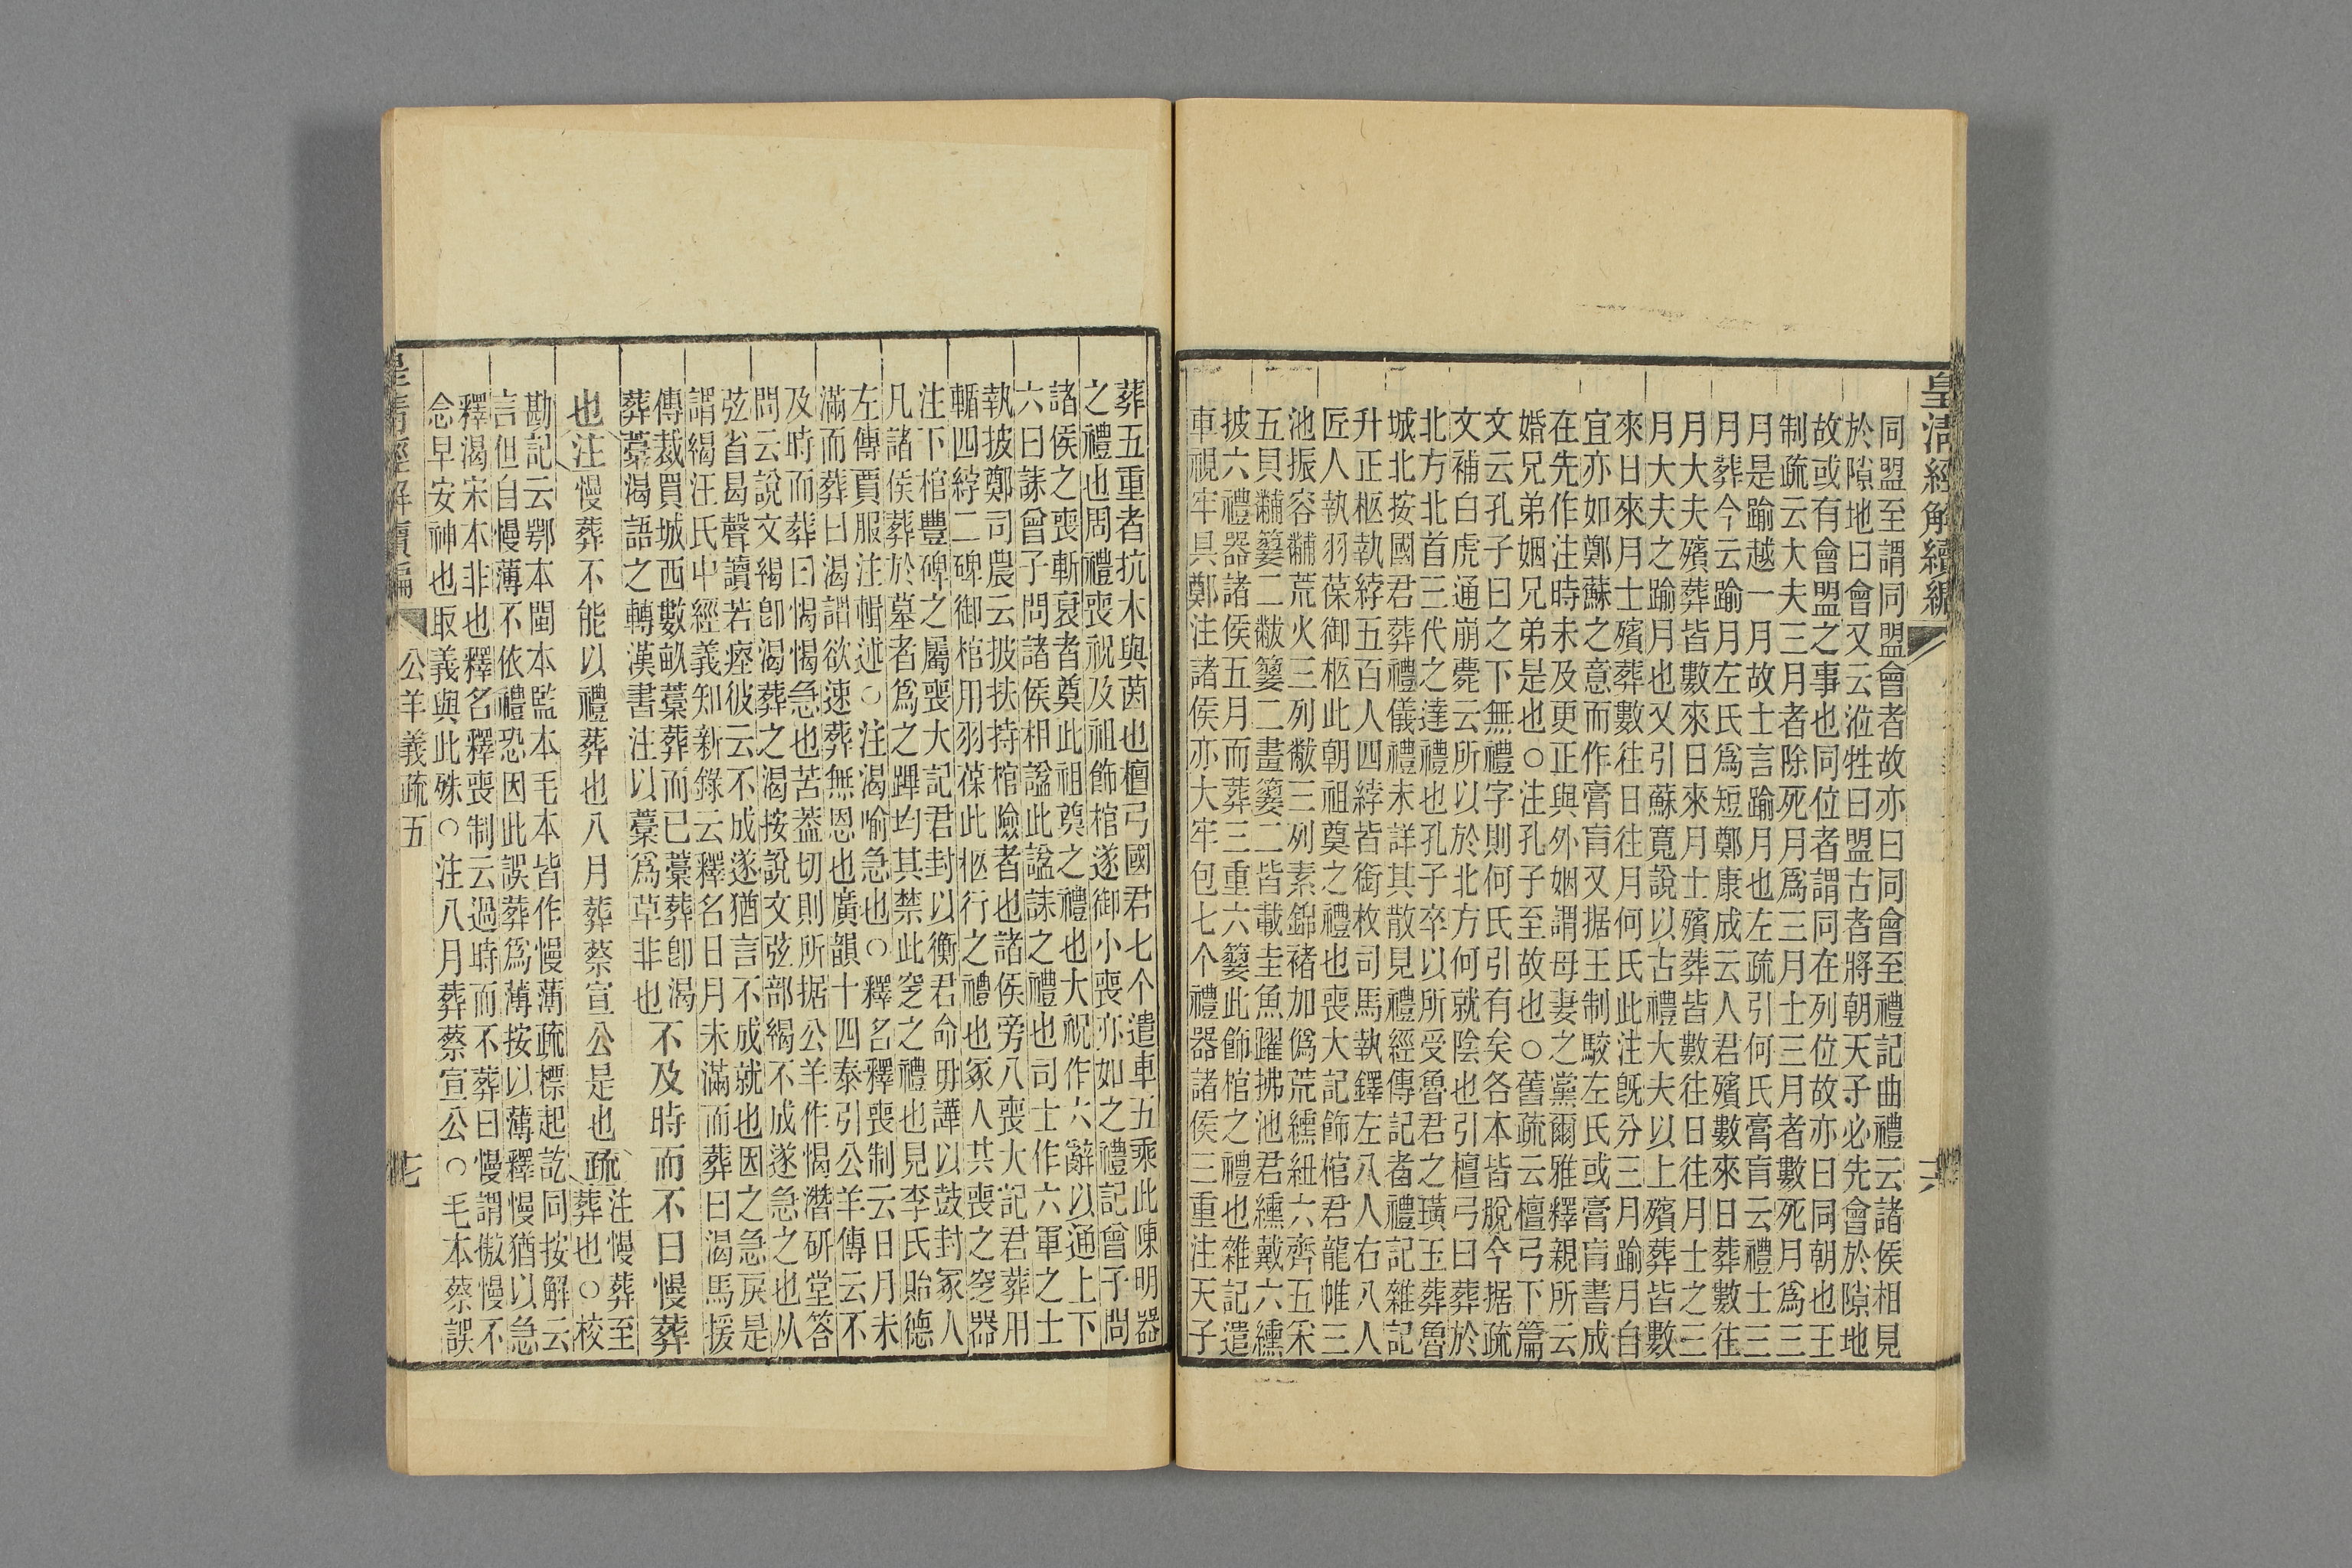 皇清經解續編
同盟至謂同盟會者故亦曰同會至禮記曲禮云諸侯相見
於隙地曰會又云涖牲曰盟古者將朝天子必先會於隙地
故或有會盟之事也同位者謂同在列位故亦曰同朝也王
制疏云大夫三月者除死月爲三月士三月者數死月爲三
月是踰越一月故士言踰月也左疏引何氏膏肓云禮士三
月葬今云踰月左氏爲短鄭康成云人君殯數來日葬數往
月大夫殯葬皆數來日來月士殯葬皆數往日往月士之三
月大夫之踰月也又引蘇寬說以古禮大夫以上殯葬皆數
來日來月士殯葬數往日往月何氏此注旣分三月踰月自
宜亦如鄭蘇之意而作膏肓又据王制駮左氏或膏肓書成
在先作注時未及更正與外姻謂母妻之黨爾雅釋親所云
婚兄弟姻兄弟是也○注孔子至故也○舊疏云檀弓下篇
文云孔子曰之下無禮字則何氏引有矣各本皆脫今据疏
文補白虎通崩薨云所以於北方何就陰也引檀弓曰葬於
北方北首三代之達禮也孔子卒以所受魯君之璜玉葬魯
城北按國君葬禮儀禮未詳其散見禮經傳記者禮記雜記
升正柩執綍五百人四綍皆銜枚司馬執鐸左八人右八人
匠人執羽葆御柩此朝祖奠之禮也喪大記飾棺君龍帷三
池振容黼荒火三列黻三列素錦褚加僞荒纁紐六齊五采
五貝黼翣二黻翣二畫翣二皆載圭魚躍拂池君纁戴六纁
披六禮器諸侯五月而葬三重六翣此飾棺之禮也雜記遣
車視牢具鄭注諸侯亦大牢包七个禮器諸侯三重注天子
葬五重者抗木與茵也檀弓國君七个遣車五乘此陳明器
之禮也周禮喪祝及祖飾棺遂御小喪亦如之禮記曾子問
諸侯之喪斬衰者奠此祖奠之禮也大祝作六辭以通上下
六曰誄曾子問諸侯相諡此諡誄之禮也司士作六軍之士
執披鄭司農云披扶持棺險者也諸侯旁八喪大記君葬用
輴四綍二碑御棺用羽葆此柩行之禮也冢人共喪之窆器
注下棺豐碑之屬喪大記君封以衡君命毋譁以鼓封冢人
凡諸侯葬於墓者爲之蹕均其禁此窆之禮也見李氏貽德
左傳賈服注輯述○注渴喻急也○釋名釋喪制云日月未
滿而葬曰渴謂欲速葬無恩也廣韻十四泰引公羊傳云不
及時而葬曰愒愒急也苦葢切則所据公羊作愒潛研堂答
問云說文䈓卽渴葬之渴按說文弦部竭不成遂急之也从
弦省曷聲讀若瘞彼云不成遂猶言不成就也因之急戾是
謂緆汪氏中經義知新錄云釋名日月未滿而葬曰渴馬援
傳裁買城西數畝藁葬而已藁葬卽渴
葬藁渴語之轉漢書注以藁爲草非也不及時而不日慢葬
也注慢葬不能以禮葬也八月葬蔡宣公是也疏注慢葬至
葬也○校
勘記云鄂本閩本監本毛本皆作慢薄疏標起訖同按解云
言但自慢薄不依禮恐因此誤葬爲薄按以薄釋慢猶以急
釋渴宋本非也釋名釋喪制云過時而不葬曰慢謂慠慢不
念早安神也取義與此殊○注八月葬蔡宣公○毛本蔡誤
皇清經解續編
公羊義疏五